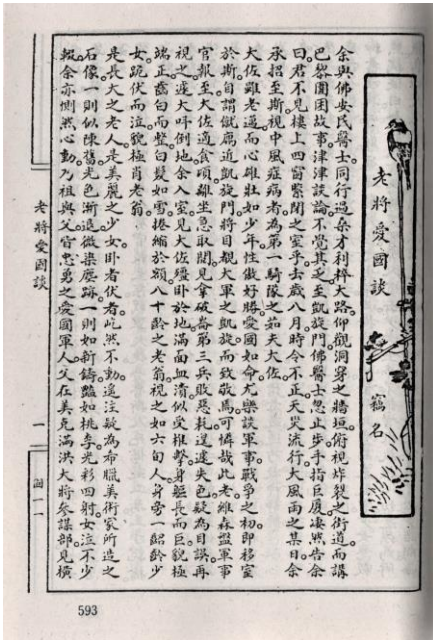 老將愛國談
竊名
余與佛安民醫士同行過桑才利粹大路仰觀洞穿之牆垣俯視炸裂之街道而講
巴黎圍困故事津津談論不覺其乏至凱旋門佛醫士忽止步手指巨廈凄然告余
曰君不見樓上四窗緊閉之室乎去歲八月時令不正天災流行大風雨之某日余
承招至斯視中風症病者為第一騎隊之茹夫大佐
大佐雖老邁而心雄壯如少年性傲好勝愛國如命尤樂談軍事戰爭之初即移室
於斯自謂僦廡近凱旋門將目覩大軍之凱旋而致敬焉可憐哉此老維森盤軍事
官報至大佐適食頃離坐急取閱見拿破崙第三兵敗惡耗遑遽失色疑為目誤再
視之遽大吽倒地余入室見大佐殭卧於地滿面血漬似受椎擊身軀長而巨貌極
端正齒白而整白髮如雪捲縮於額八十齡之老翁視之如六旬人身旁一韶齡少
女跪伏而泣貌極肖老翁
是長大之老人是美麗之少女卧者伏者屹然不動遠注疑為希臘美術家所造之
石像一則似陳舊光色漸退微染塵跡一則如新鑄豔如桃李光彩四射女泣不少
輟余亦惻然心動乃祖與父皆忠勇之愛國軍人父在美克滿洪大將參謀部見橫
老將愛國談
一
593